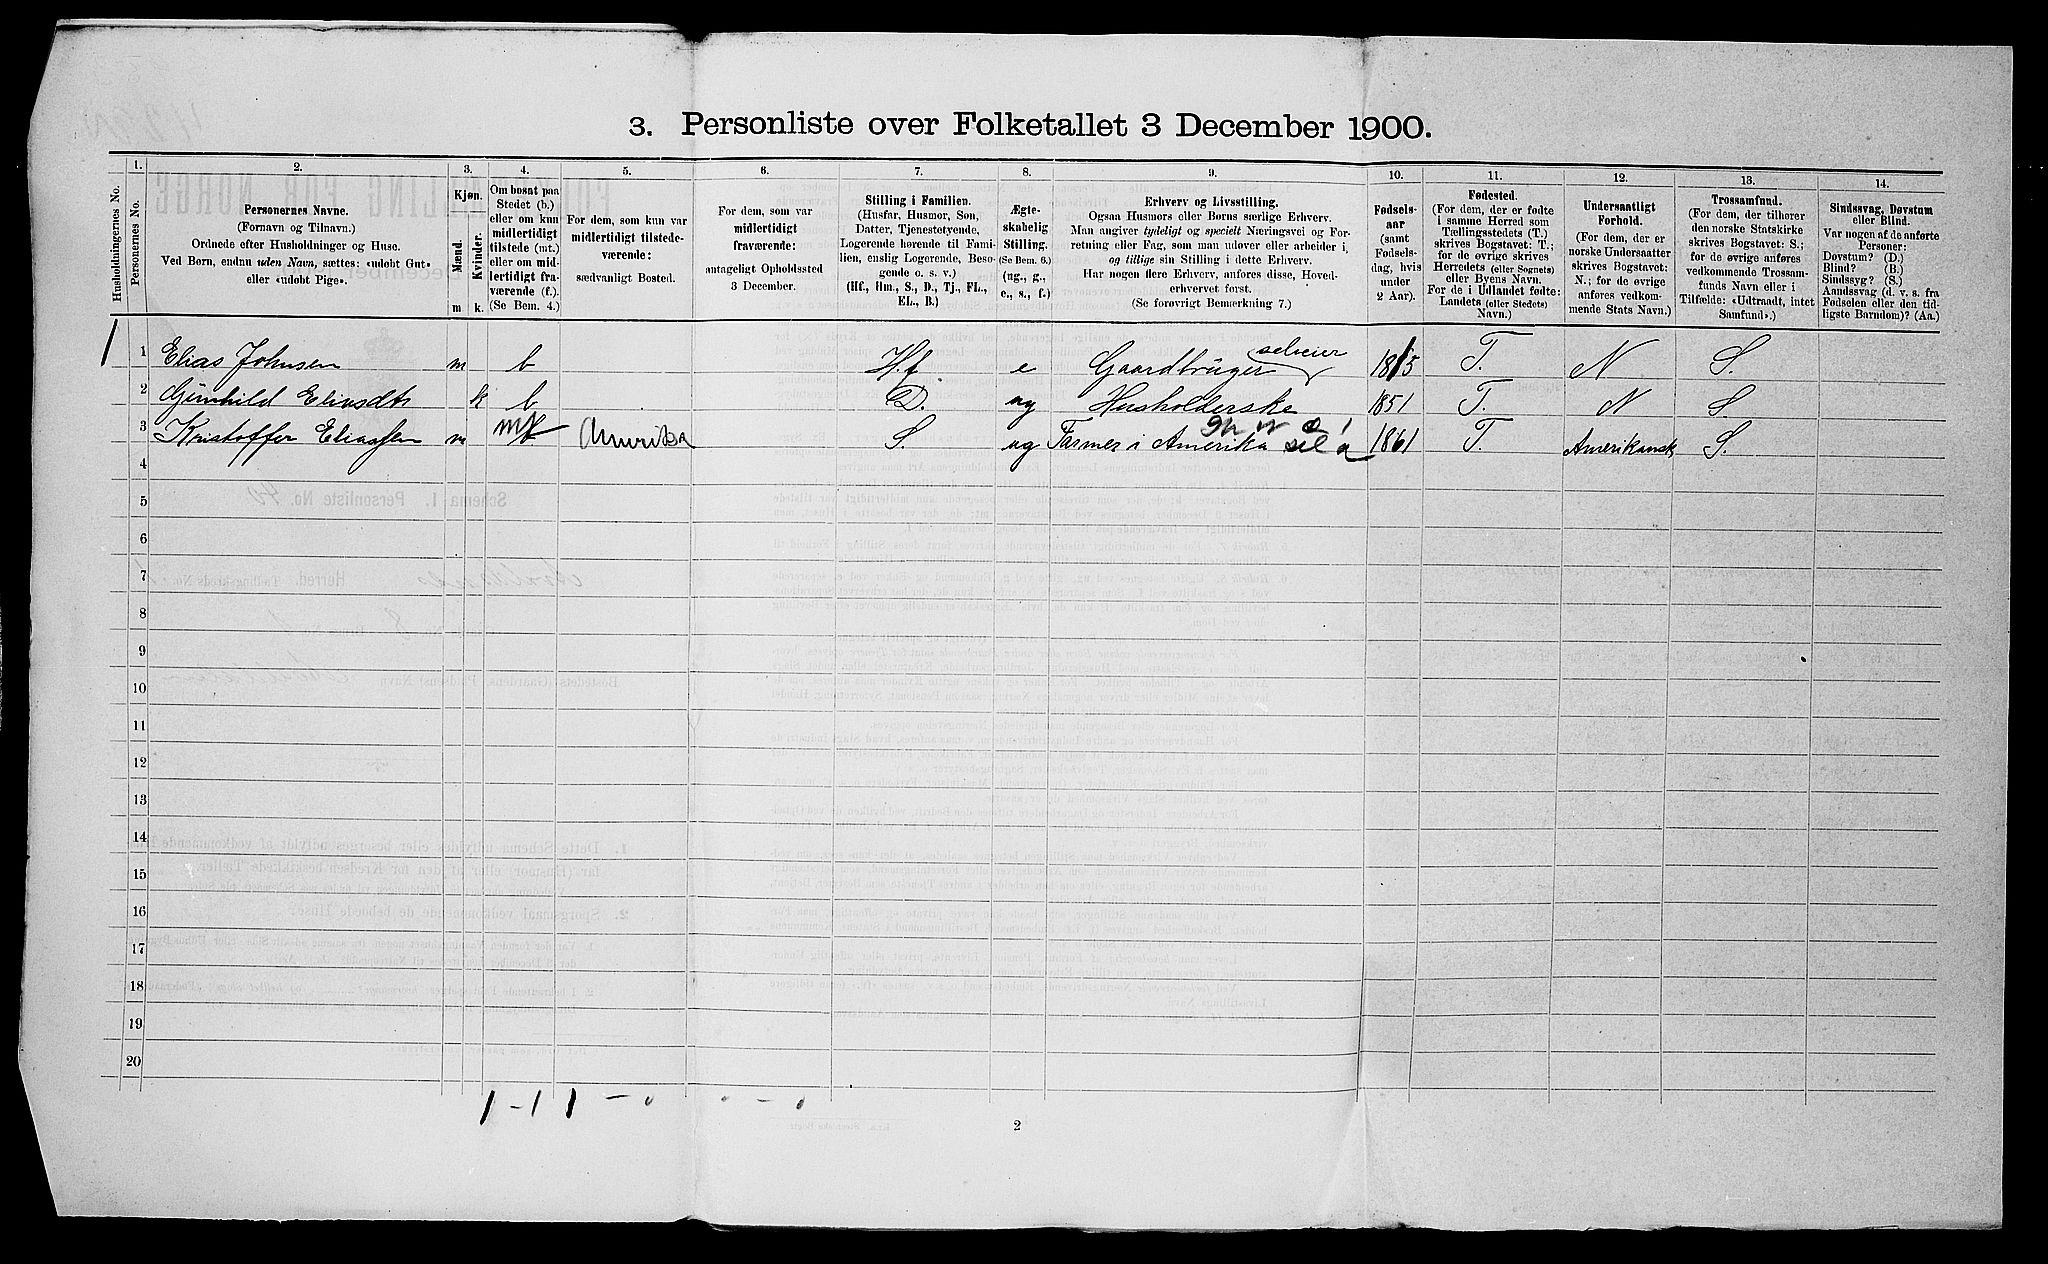 3. Personliste over Folketallet 3 December 1900.
Husholdningernes No.
1.
Personernes No.
2.
Personernes Navne.
(Fornavn og Tilnavn.)
Ordnede efter Husholdninger og Huse.
Ved Børn, endnu uden Navn, sættes: «udøbt Gut»
eller «udøbt Pige».
3.
Kjøn.
Mænd.
Kvinder.
m k.
4.
Om bosat paa
Stedet (b.)
eller om kun
midlertidigt
tilstede (mt.)
eller om mid-
lertidigt fra-
værende (f.)
(Se Bem. 4.)
5.
For dem, som kun var
midlertidigt tilstede-
værende:
sædvanligt Bosted.
6.
For dem, som var
midlertidigt
fraværende:
antageligt Opholdssted
3 December.
7.
Stilling i Familien.
(Husfar, Husmor, Søn,
Datter, Tjenestetyende,
Logerende hørende til Fami-
lien, enslig Logerende, Besø-
gende o. s. v.)
(Hf., Hm., S., D., Tj., FL.,
EL., B.)
8.
Ægte-
skabelig
Stilling.
(Se Bem. 6.)
(ug., g.,
e., s., f.)
9.
Erhverv og Livsstilling.
Ogsaa Husmors eller Børns særlige Erhverv.
Man angiver tydeligt og specielt Næringsvei og For-
retning eller Fag, som man udover eller arbeider i,
og tillige sin Stilling i dette Erhverv.
Har nogen flere Erhverv, anføres disse, Hoved-
erhvervet først.
(Se forøvrigt Bemerkning 7.)
10.
Fødsels-
aar
(samt
Fødsels-
dag, hvis
under
2 Aar).
11.
Fødested.
(For dem, der er fødte
i samme Herred som
Tællingsstedets (T.)
skrives Bogstavet: T.;
for de øvrige skrives
Herredets (eller Sognets)
eller Byens Navn.
For de i Udlandet fødte:
Landets (eller Stedets)
Navn.)
12.
Undersaatligt
Forhold.
(For dem, der er
norske Undersaatter
skrives Bogstavet:
N.; for de øvrige
anføres vedkom-
mende Stats Navn.)
13.
Trossamfund.
(For dem, der tilhører
den norske Statskirke
skrives Bogstavet: S.;
for de øvrige anføres
vedkommende Trossam-
funds Navn eller i
Tilfælde: «Udtraadt, intet
Samfund».)
14.
Sindssvag, Døvstum
eller Blind.
Var nogen af de anførte
Personer:
Døvstum? (D.)
Blind? (B.)
Sindssyg? (S.)
Aandssvag (d. v. s. fra
Fødselen eller den tid-
ligste Barndom)? (Aa.)
1 1 Elias Johnsen m b Hf e Gaardbruger selveier 1815 T. N S.
2 Gunhild Eliasdt k b D. ug Husholderske 1851 T. N S.
3 Kristoffer Eliassen m mt Amerika S. ug Farmer i Amerika 1861 T. Amerikansk S.
4
5
6
7
8
9
10
11
12
13
14
15
16
17
18
19
20
1 - 1 1 - 0 0 - 0
2